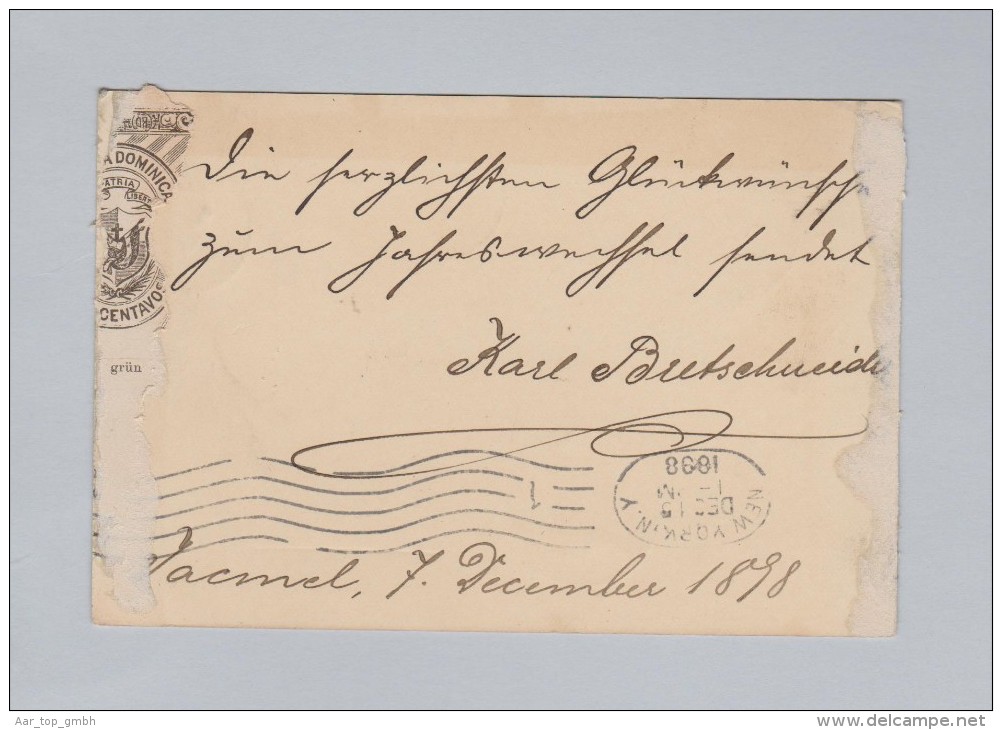 A DOMINICA
PATRIA
LIBERT
CENTAVOS
grün
Die herzlichsten Glückwünsche
zum Jahreswechsel sendet
Karl Bretschneide
1898
DEC 15
NEW YORK, N.Y.
1
Jacmel, 7. December 1898
Aar_top_gmbh
www.delcampe.net